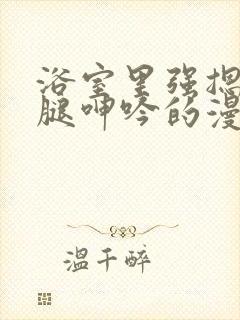 浴室里强揌
腿呻吟的漫
温千醉